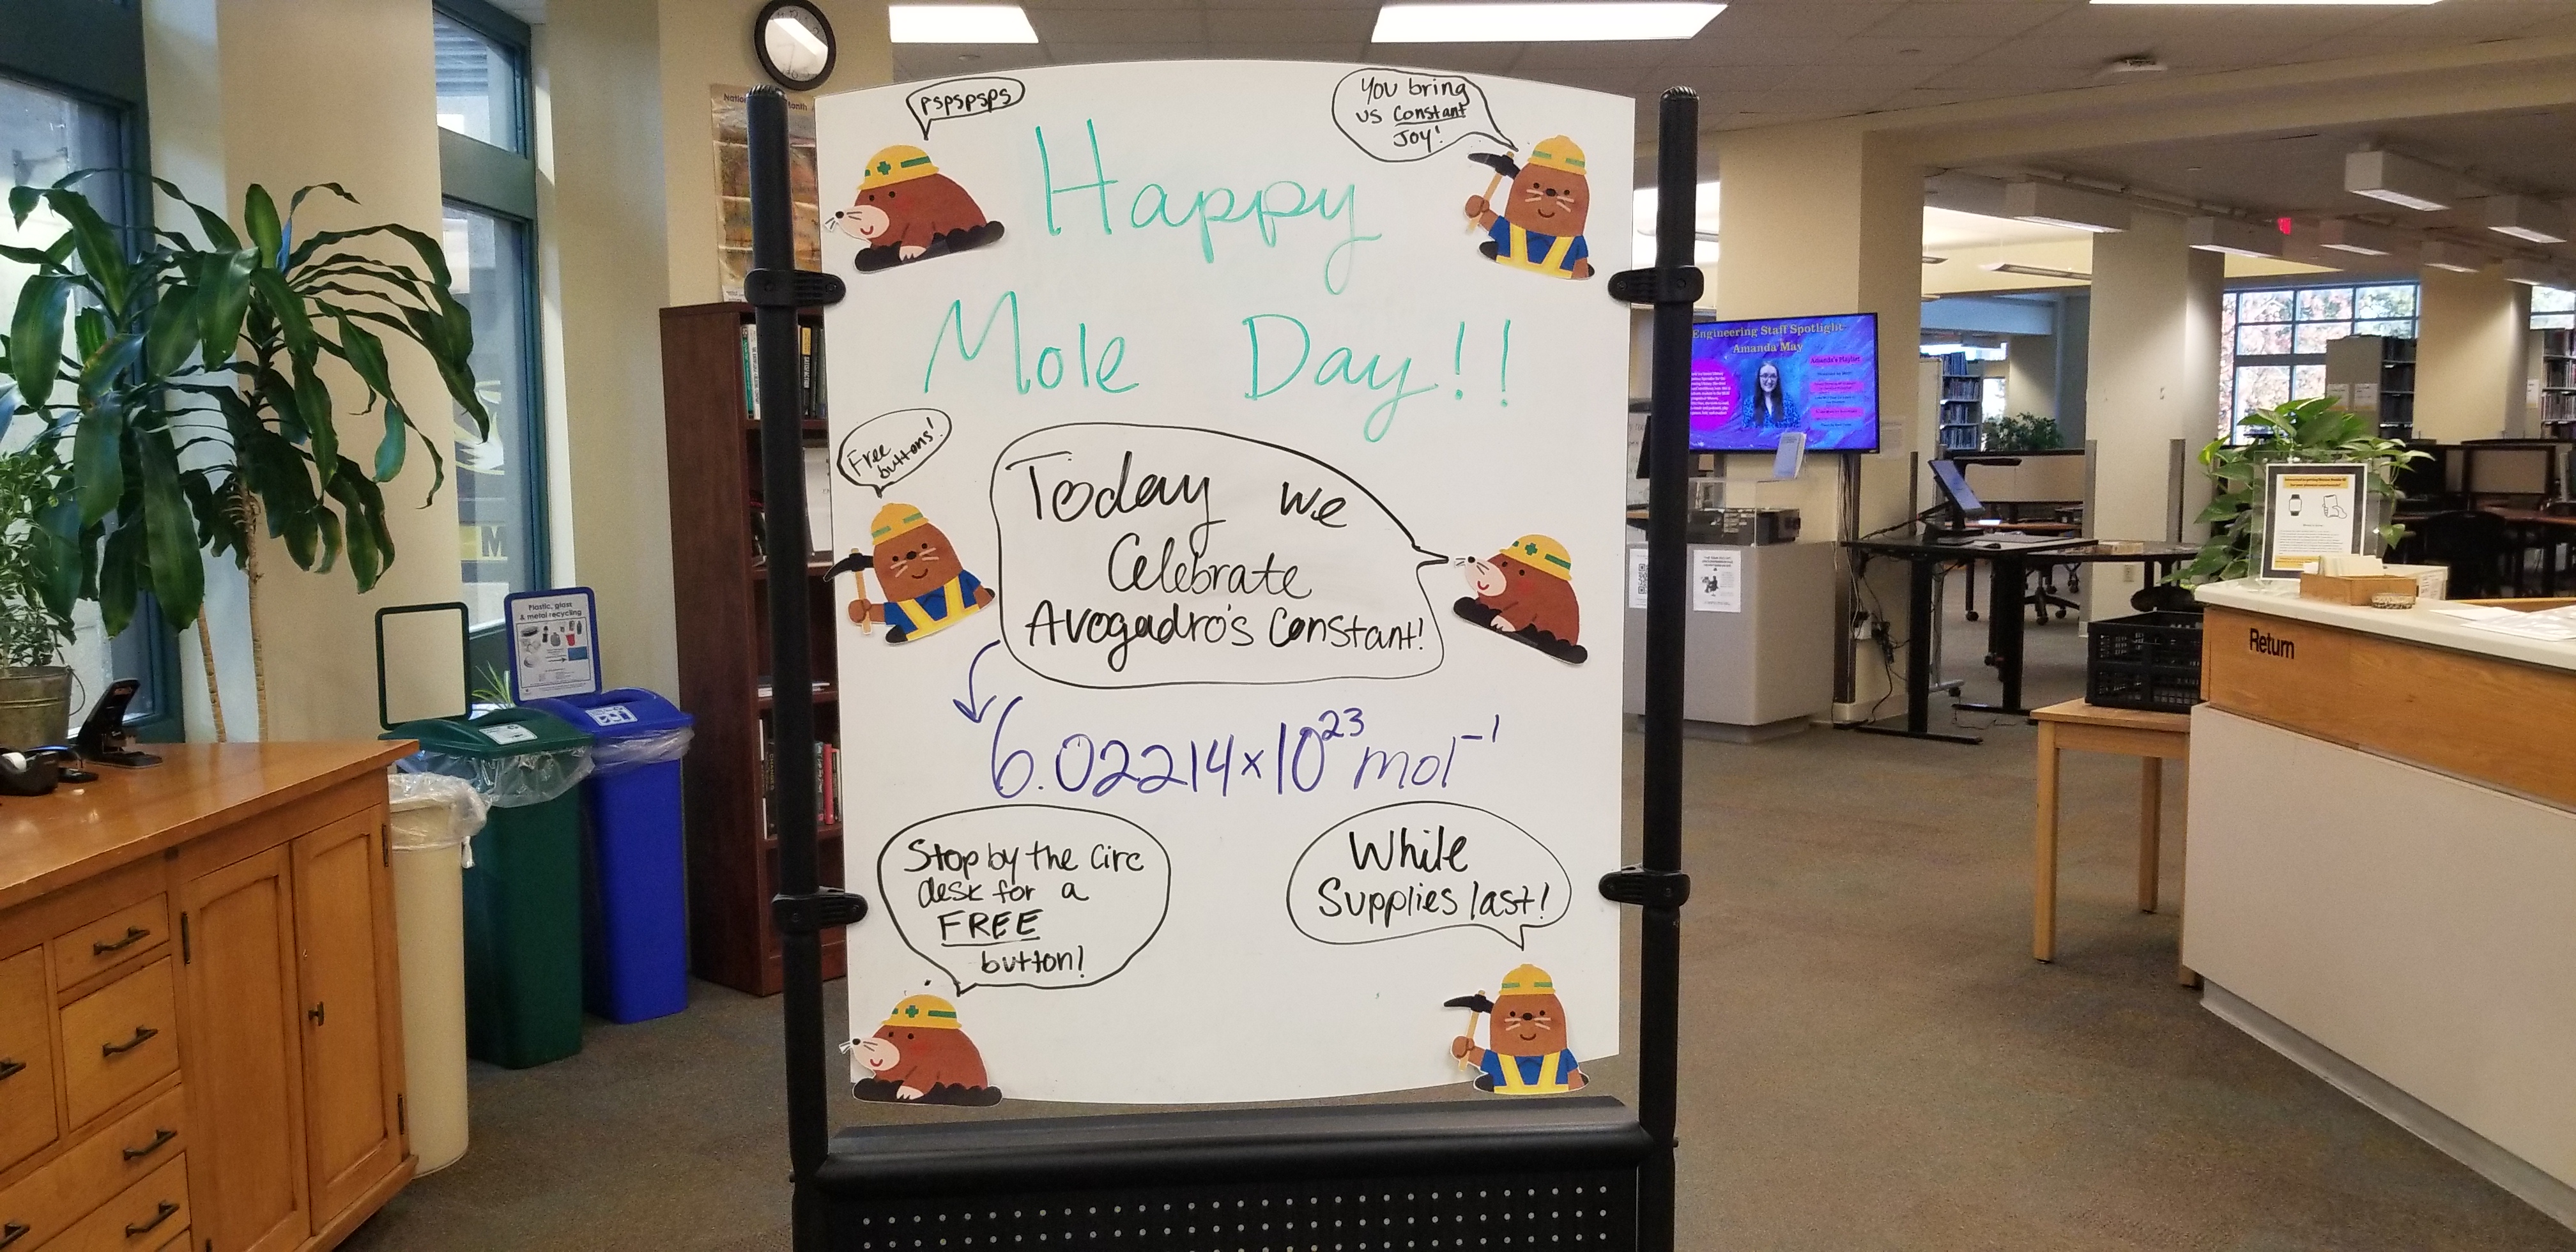 pspspsps
You bring
us Constant
Joy!
Happy
Mole Day!!
Free
buttons!
Today we
Celebrate
Avogadro's Constant!
6.02214×10²³ mol⁻¹
Stop by the Circ
desk for a
FREE
button!
While
Supplies last!
Engineering Staff Spotlight-
Amanda May
Amanda's Playlist
Plastic, glass
& metal recycling
Return
M